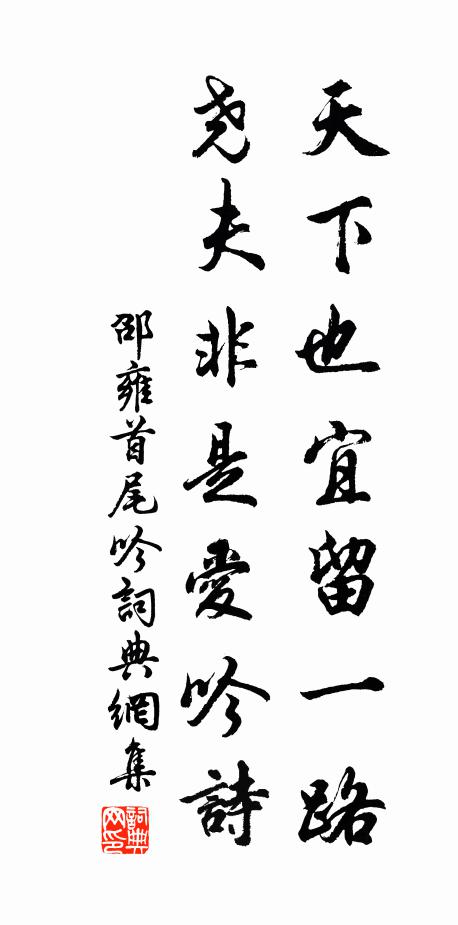 天下也宜留一路
尧夫非是愛吟詩
邵雍首尾吟詞典網集
詞典網印